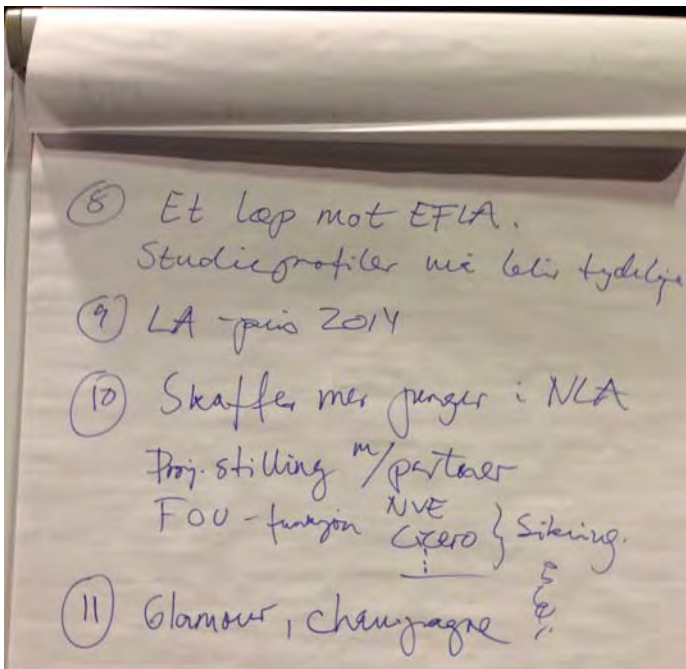 ⑧ Et løp mot EFLA.
Studieprofiler må blir tydelige
⑨ LA-pris 2014
⑩ Skaffer mer penger i NLA
Proj. stilling m/partner
FOU-funksjon NVE
Cicero } Sikring.
⑪ Glamour, champagne